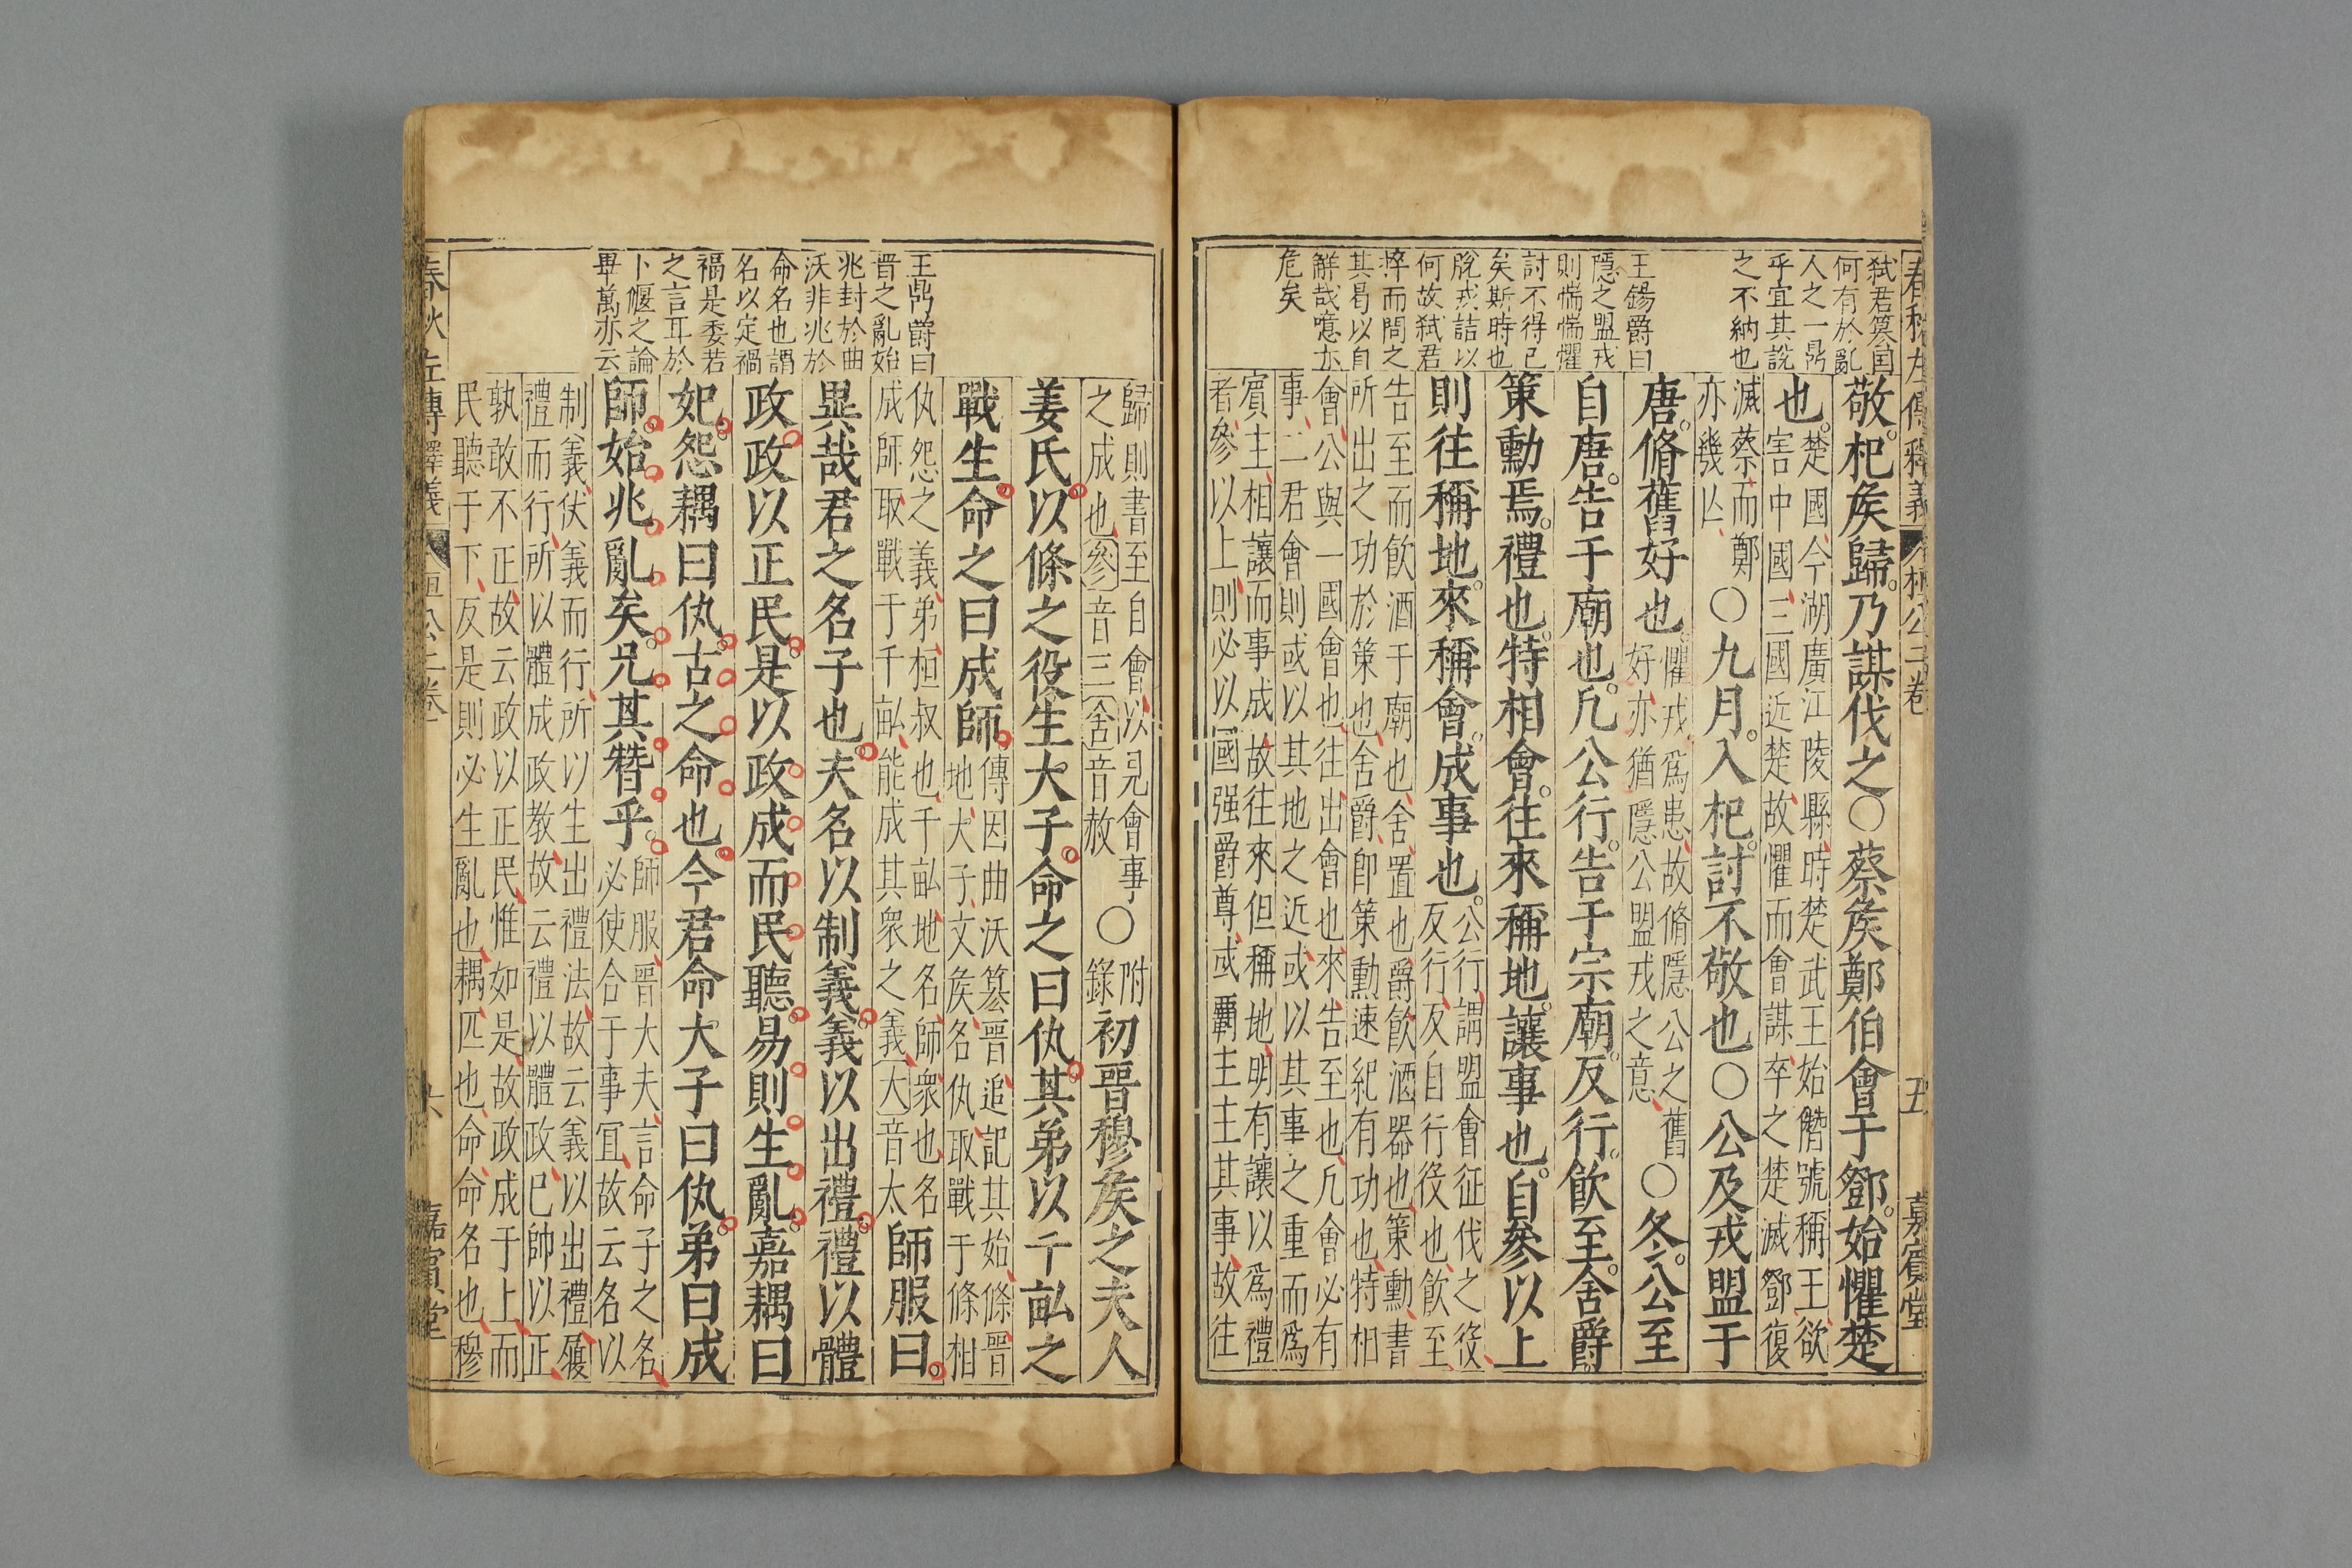 春秋左傳釋義 桓公二卷 五 嘉賓堂
弑君篡国
何有於亂
人之一鼎
乎宜其說
之不納也
王錫爵曰
隱之盟戎
則惴惴懼
討不得已
矣斯時也
脫戎詰以
何故弑君
猝而問之
其曷以自
觧哉噫亦
危矣
敬。杞矦歸。乃謀伐之○蔡矦鄭伯會于鄧。始懼楚
也。楚國、今湖廣江陵縣、時楚武王始僭號稱王、欲
害中國、三國近楚、故懼而會謀、卒之楚滅鄧、復
滅蔡、而鄭
亦幾亾、
○九月。入杞。討不敬也○公及戎盟于
唐。脩舊好也。懼戎爲患、故脩隱公之舊
好、亦猶隱公盟戎之意、
○冬。公至
自唐。告于廟也。凡公行。告于宗廟。反行。飲至。舍爵。
策勳焉。禮也。特相會。往來稱地。讓事也。自參以上
則往稱地。來稱會。成事也。公行、謂盟會征伐之役、
反行、反自行役也、飲至、
告至而飲酒于廟也、舍、置也、爵、飲酒器也、策勳、書
所出之功於策也、舍爵、卽策勳速紀有功也、特相
會、公與一國會也、往、出會也、來、告至也、凡會必有
事、二君會則或以其地之近、或以其事之重而爲
賓主、相讓而事成、故往來但稱地、明有讓以爲禮
者、參以上、則必以國强爵尊、或覇主主其事、故往
歸則書至自會、以見會事
之成也、參音三舍音赦
○附
錄
初晋穆矦之夫人
姜氏。以條之役生大子。命之曰仇。其弟以千畝之
戰生。命之曰成師。傳因曲沃簒晋、追記其始、條、晋
地、大子、文矦、名仇、取戰于條相
仇怨之義、弟、桓叔也、千畝、地名、師、衆也、名
成師、取戰于千畝、能成其衆之義、大音太
師服曰。
異哉君之名子也。夫名以制義。義以出禮。禮以體
政。政以正民。是以政成而民聽。易則生亂。嘉耦曰
妃。怨耦曰仇。古之命也。今君命大子曰仇。弟曰成
師。始兆亂矣。兄其替乎。師服、晋大夫、言命子之名、
必使合于事冝、故云名以
制義、伏義而行、所以生出禮法、故云義以出禮、履
禮而行、所以體成政教、故云禮以體政、已帥以正、
孰敢不正、故云政以正民、惟如是、故政成于上、而
民聽于下、反是則必生亂也、耦、匹也、命、命名也、穆
王鼎爵曰
晋之亂始
兆封於曲
沃非兆於
命名也謂
名以定禍
福是委若
之言耳於
卜偃之論
畢萬亦云
春秋左傳釋義 桓公二卷 六 嘉賓堂